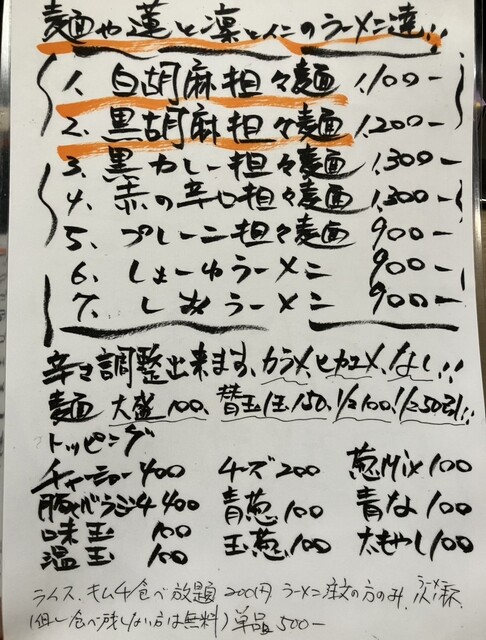 麺や蓮と凛とイニのラーメン達!!
1、白胡麻担々麺 1,100ー
2、黒胡麻担々麺 1,200ー
3、黒カレー担々麺 1,300ー
4、赤の辛口担々麺 1,300ー
5、プレーン担々麺 900ー
6、しょーゆラーメン 900ー
7、しおラーメン 900ー
辛さ調整出来ます、カラメ、ヒカエメ、なし!!
麺 大盛100、替玉1玉150、1/2 100、1/2 50引!!
トッピング
チャーシュー400 チーズ200 葱Mix 100
豚バラ 400 青葱 100 青な 100
味玉 100 玉葱 100 太もやし 100
温玉 100
ライス、キムチ食べ放題 200円 ラーメン注文の方のみ、
(但し食べ残しない方は無料) 単品500ー